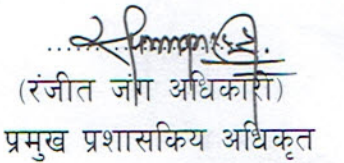 (रंजीत जंग अधिकारी)
प्रमुख प्रशासकिय अधिकृत